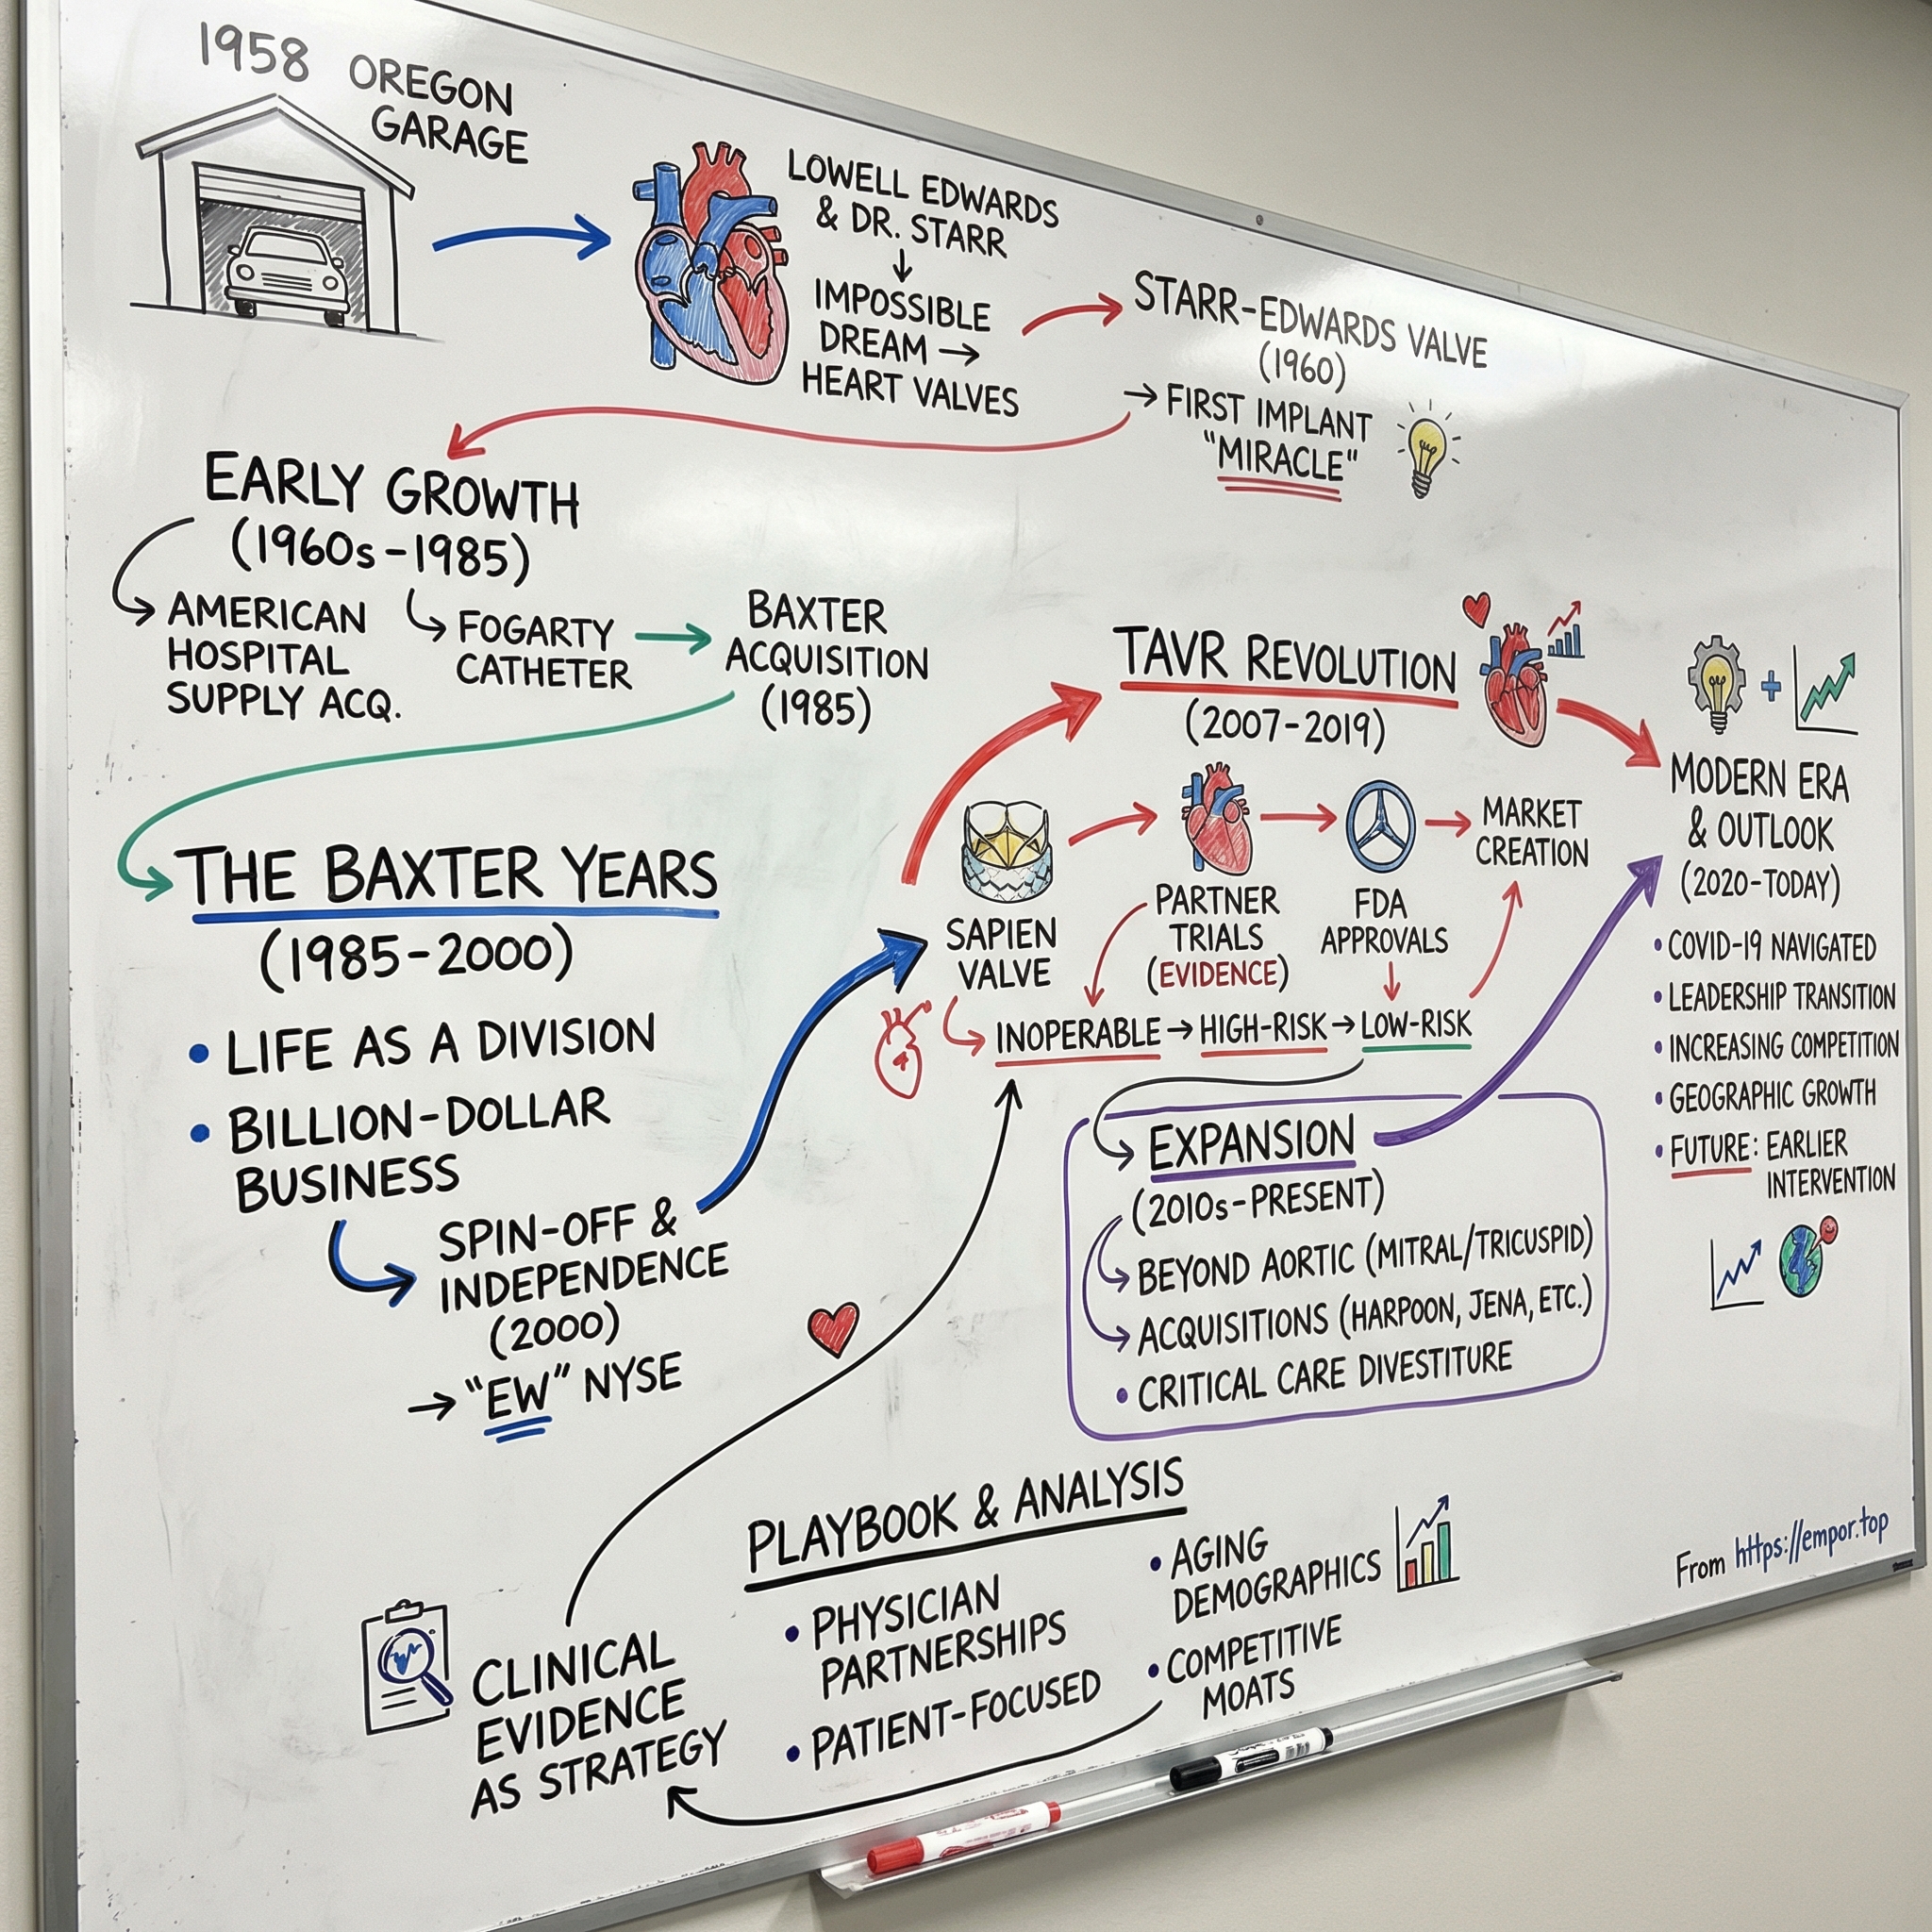 1958 OREGON
GARAGE
LOWELL EDWARDS
& DR. STARR
↓
IMPOSSIBLE
DREAM →
HEART VALVES
STARR-EDWARDS VALVE
(1960)
→ FIRST IMPLANT
"MIRACLE"
EARLY GROWTH
(1960s-1985)
AMERICAN
HOSPITAL
SUPPLY ACQ.
FOGARTY
CATHETER
BAXTER
ACQUISITION
(1985)
THE BAXTER YEARS
(1985-2000)
• LIFE AS A DIVISION
• BILLION-DOLLAR
BUSINESS
SPIN-OFF &
INDEPENDENCE
(2000)
→ "EW" NYSE
TAVR REVOLUTION
(2007-2019)
SAPIEN
VALVE
PARTNER
TRIALS
(EVIDENCE)
FDA
APPROVALS
MARKET
CREATION
INOPERABLE → HIGH-RISK → LOW-RISK
EXPANSION
(2010s-PRESENT)
BEYOND AORTIC (MITRAL/TRICUSPID)
ACQUISITIONS (HARPOON, JENA, ETC.)
• CRITICAL CARE DIVESTITURE
MODERN ERA
& OUTLOOK
(2020-TODAY)
• COVID-19 NAVIGATED
• LEADERSHIP TRANSITION
• INCREASING COMPETITION
• GEOGRAPHIC GROWTH
• FUTURE: EARLIER
INTERVENTION
PLAYBOOK & ANALYSIS
• PHYSICIAN
PARTNERSHIPS
• PATIENT-FOCUSED
• AGING
DEMOGRAPHICS
• COMPETITIVE
MOATS
CLINICAL
EVIDENCE
AS STRATEGY
From https://empor.top